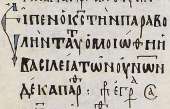 ΕΙΠΕΝΟΚϹΤΗΝΠΑΡΑΒΟ
ΛΗΝΤΑΥ ΟΜΟΙΩΘΗ Η
ΒΑϹΙΛΕΙΑΤΩΝΟΥΝΩΝ
ΔΕΚΑΠΑΡ: